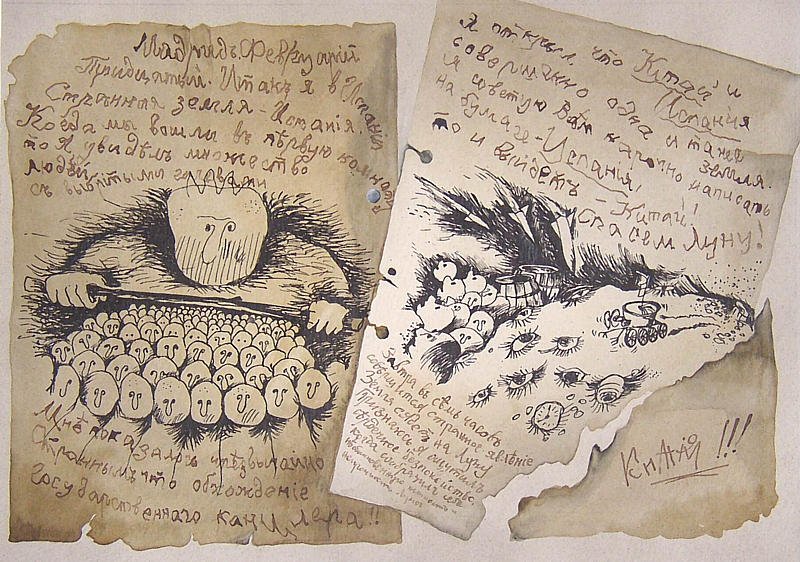 Мадридъ. Февруарій
Тридцатый. Итакъ я в Испаніи
Странная земля - Испанія.
Когда мы вошли въ първую комнату
то я увидѣлъ множество
людѣй
съ выбритыми головами
Мнѣ показалось чрѣзвычайно
страннымъ что обхожденіе
государственнаго канцлера!!
Я открыл, что Китай и
Испания
совершенно одна и таже земля.
я советую Вам нарочно написать
на бумаге - Испанія!
то и выйдетъ - Китай!!!
Спасем Луну!
Завтра въ сѣмь часовъ
совершится странное явленіе
Земля сядет на Луну
Признаюсь я ощутилъ
сердечное безпокойство,
когда вообразилъ себѣ
необыкновенную нежность и
непрочность Луны
Китай !!!